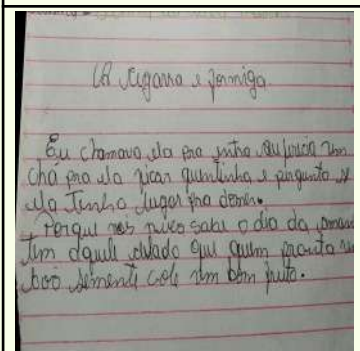 A cigarra e formiga
Eu chamava ela pra entra eu fazia um
cha pra ela ficar quentinha e pergunta se
ela tinha lugar pra dormi.
Porque nos nuco sabe o dia da
tem daquele ditado que quem pranta
boa semente cole um bom fruto.